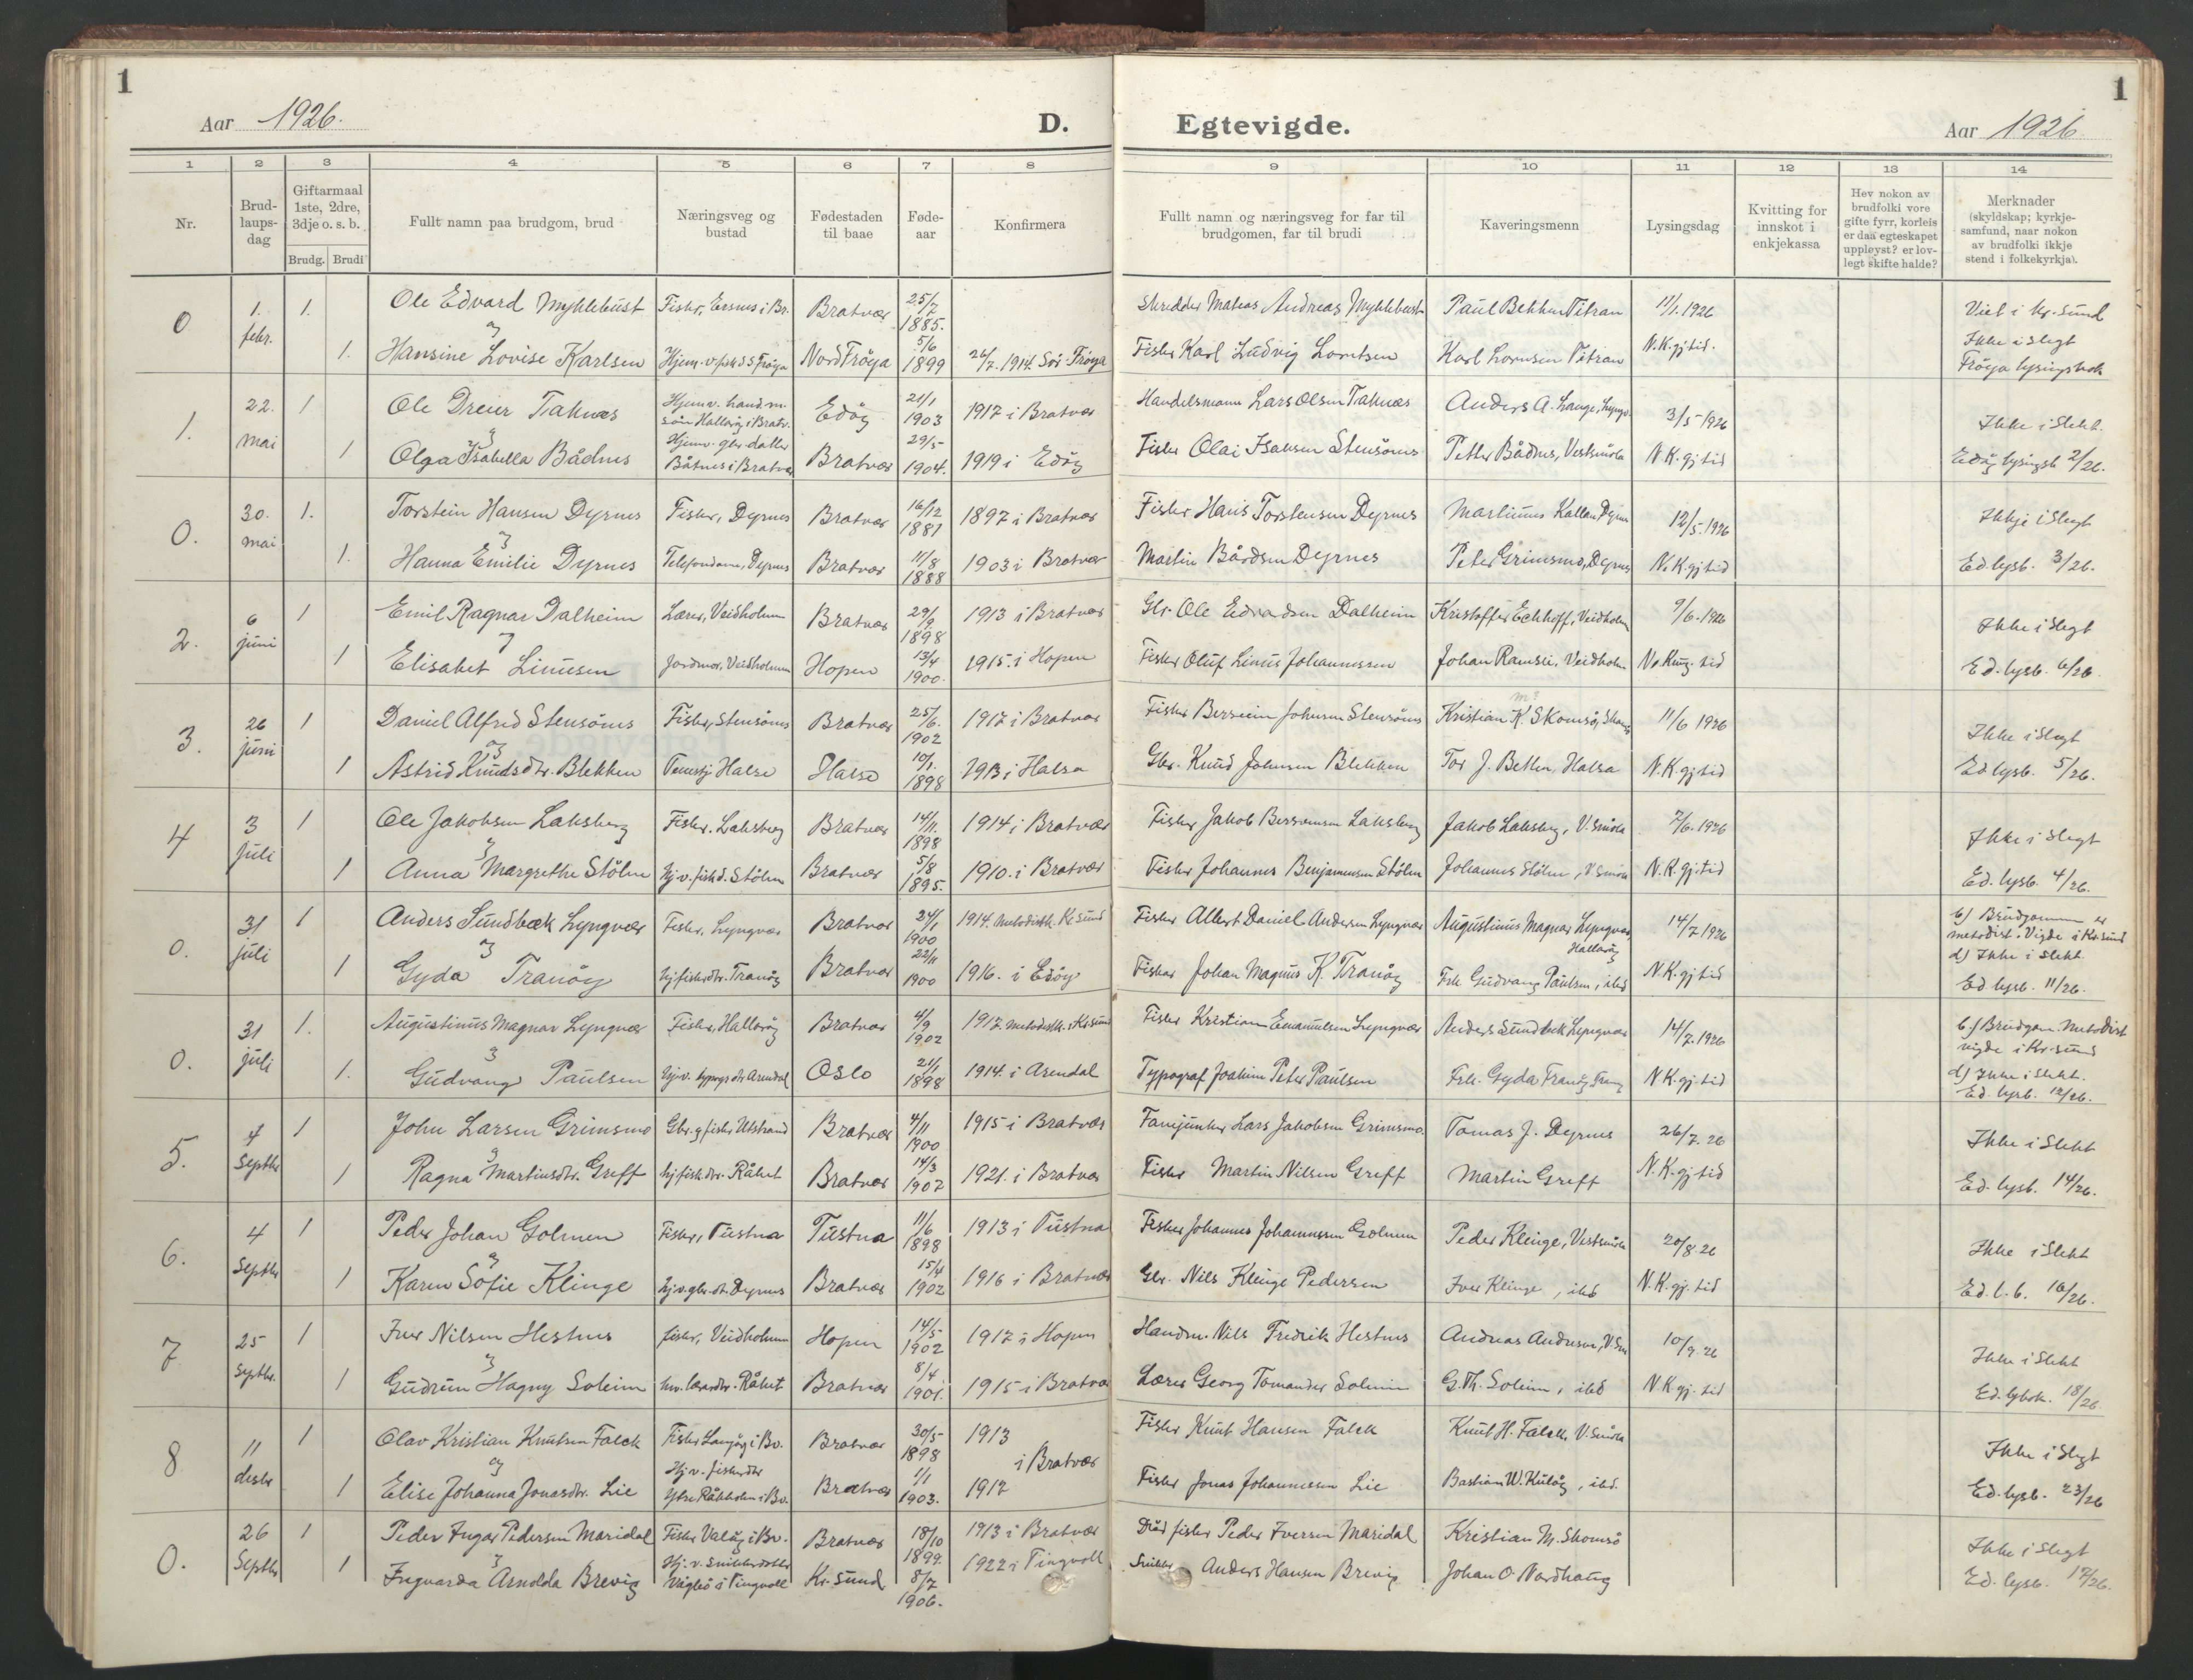 1
Aar 1926.
D.
1 2 3 4 5 6 7 8
Nr.
Brud-
laups-
dag
Giftarmaal
1ste, 2dre,
3dje o. s. b.
Brudg. Brudi
Fullt namn paa brudgom, brud
Næringsveg og
bustad
Fødestaden
til baae
Føde-
aar
Konfirmera
0 1. febr. 1. Ole Edvard Myklebust Fisker, i Br. Bratvær 25/7 1885.
og
1. Hansine Lovise Karlsen Nord Frøya 5/6 1899 26/7. 1914. Sør Frøya
1. 22. mai Ole Dreier Taknæs Hjemv. hand.m. søn Hallarøy i Bratv. Edøy 21/1 1903 1917 i Bratvær
og
1 Olga Isabella Bådnes Hjemv. gbr. datter Båtnes i Bratvær Bratvær 29/5 1904. 1919 i Edøy
0. 30. mai 1. Torstein Hansen Dyrnes Fisker, Dyrnes Bratvær 16/12 1881 1897 i Bratvær
og
1. Hanna Emilie Dyrnes Telefondame, Dyrnes Bratvær 11/8 1888 1903 i Bratvær
2. 6 juni 1 Emil Ragnar Dalheim Lærer, Veidholmen Bratvær 29/9. 1898 1913 i Bratvær
og
1 Elisabet Linusen Jordmor, Veidholmen Hopen 13/4 1900. 1915. i Hopen
3. 26 juni 1 Daniel Alfred Stensönes Fisker, Stensönes Bratvær 25/6. 1902 1917 i Bratvær
og
1 Astrid Knudsdtr. Blekken Halse Halse 10/1. 1898 1913 i Halsa
4 3 juli 1 Ole Jakobsen Laksberg Fisker. Laksberg Bratvær 14/11. 1898 1914 i Bratvær
og
1 Anna Margrethe Stölen Hj.v. fiskd. Stölen Bratvær 5/8 1895. 1910. i Bratvær
0. 31 juli 1 Anders Sundbæk Lyngvær Fisker, Lyngvær Bratvær 24/1 1900 1914. Metodistk. Kr.sund
og
1 Gyda Tranöy Hj fiskerdtr. Tranöy Bratvær 22/11 1900 1916. i Edöy
0. 31 juli 1. Augustinus Magnar Lyngvær Fisker, Hallaröy Bratvær 4/9 1902 1917. Metodistk. i Kr.sund
og
1. Gudvang Paulsen Hj.v. typogr.dtr Arendal Oslo 21/1 1898 1914. i Arendal
5. 4 Septbr 1 John Larsen Grimsmo Gbr. og fisker Utstrand Bratvær 4/11 1900 1915 i Bratvær
og
1 Ragna Martinsdtr. Greff Hj fisk.dtr. Råket Bratvær 14/3 1907 1921. i Bratvær
6. 4 Septbr 1 Peder Johan Golmen Fisker, Tustna Tustna 11/6 1898 1913 i Tustna
og
1 Karen Sofie Klinge Hj.v. gbr.dt. Dyrnes Bratvær 15/4 1902 1916 i Bratvær
7 25 Septbr. 1 Iver Nilsen Hestnes fisker, Veidholmen Hopen 14/5 1902 1917 i Hopen
og
1 Gudrun Hagny Soleim Hv. lærerdtr. Råket Bratvær 8/4 1901. 1915 i Bratvær
8 11 desbr 1 Olav Kristian Knutsen Falck Fisker Langöy i Bv. Bratvær 30/5 1898 1913
og
i Bratvær
1 Elise Johanna Jonasdtr. Lie Hj.v. fiskerdtr Ytre Råkholm i Bv. Bratvær 1/1 1903. 1917
0. 26 Septbr 1 Peder Ingar Pedersen Maridal Fisker Valöy i Bv. Bratvær 18/10 1899. 1913 i Bratvær
og
1 Ingvarda Arnolda Brevig Hj.v. Snikkerdatter Vågbö i Tingvoll Kr.sund 8/7 1906. 1922 i Tingvoll
1
Egtevigde.
Aar 1926
9 10 11 12 13 14
Fullt namn og næringsveg for far til
brudgomen, far til brudi
Kaveringsmenn
Lysingsdag
Kvitting for
innskot i
enkjekassa
Hev nokon av
brudfolki vore
gifte fyrr, korleis
er daa egteskapet
uppløyst? er lov-
legt skifte halde?
Merknader
(skyldskap; kyrkje-
samfund, naar nokon
av brudfolki ikkje
stend i folkekyrkja).
Skredder Mateas Andreas Myklebust Paul Bekken Titran 11/1. 1926 Viet i Kr.sund
Fisker Karl Ludvig Lorntsen Karl Lorntsen Titran N.K. gj tid. Ikke i slegt
Fröya lysingsbok
Handelsmann Lars Olsen Taknæs Anders A. Lange, Lyngv. 3/5 1926 Ikke i Slekt.
Fisker Olai Isaksen Stensönes Petter Bådnes, Vestsmöla N.K. gj tid Edöy lysingsb 2/26.
Fisker Hans Torstensen Dyrnes Martinus Kallen Dyrnes 12/5. 1926 Ikkje i Slegt
Martin Bårdsen Dyrnes Peter Grimsmo, Dyrnes N.K. gj tid Ed. lysb. 3/26.
Gbr. Ole Edvardsen Dalheim Kristoffer Eckhoff, Veidholm 9/6. 1926 Ikke i Slegt
Fisker Oluf Linus Johannessen Johan Ramsli, Veidholm N. Kung. tid Ed. lysb. 6/26.
Fisker Johnsen Stensönes Kristian K. Skomsö, 11/6 1926 Ikke i Slegt
Gbr. Knud Johnsen Blekken Tor J. Betten, Halsa N.K. gj tid Ed lysb. 5/26.
Fisker Jakob Laksberg Jakob Laksberg, V. Smöla 7/6. 1926 Ikke i Slegt
Fisker Johannes Benjaminsen Stölen Johannes Stölen, V Smöla N.K. gj. tid Ed. lysb. 4/26.
Fisker Albert Daniel Andersen Lyngvær Augustinus Magnar Lyngvær, Hallaröy 14/7 1926 b) Brudgommen er
metodist. Vigde i Kr.sund
d) Ikke i slekt
Fisker Johan Magnus K. Tranöy Frk Gudvang Paulsen, ibid N.K. gj tid Ed lysb. 11/26.
Fisker Kristian Emanuelsen Lyngvær Anders Sundbæk Lyngvær 14/7. 1926 b.) Brudgom. Metodist
vigde i Kr.sund
Typograf Joakim Peter Paulsen Frk. Gyda Tranöy N.K. gj tid d) Ikke i slekt.
Ed. lysb. 12/26.
Fanejunker Lars Jakobsen Grimsmo. Tomas J. Dyrnes 26/7. 26 Ikke i Slekt
Fisker Martin Nilsen Greff Martin Greff N.K. gj tid Ed. lysb. 14/26.
Fisker Johannes Johannessen Golmen Peder Klinge, Vestsmöla 20/8 26 Ikke i Slekt
Gbr. Nils Klinge Pedersen Iver Klinge, ibid N.K. gj. tid Ed. l. b. 16/26.
Handm. Nils Fredrik Hestnes Andreas Andresen, V. Sm 10/9. 26 Ikke i Slekt
Lærer Georg Tomander Soleim G. Th. Soleim, ibid N.K. gj. tid Ed. lybok. 18/26
Fisker Knut Hansen Falck Knut H. Falck, V. Smöla Ikke i Slegt
Fisker Jonas Johannessen Lie Bastian W. Kulöy, ibid. Ed. lysb. 23/26
Död fisker Peder Iversen Maridal Kristian M. Skomsö Ikke i Slegt
Snikker Anders Hansen Brevig Johan O. Nordhaug Ed. lysb. 17/26.